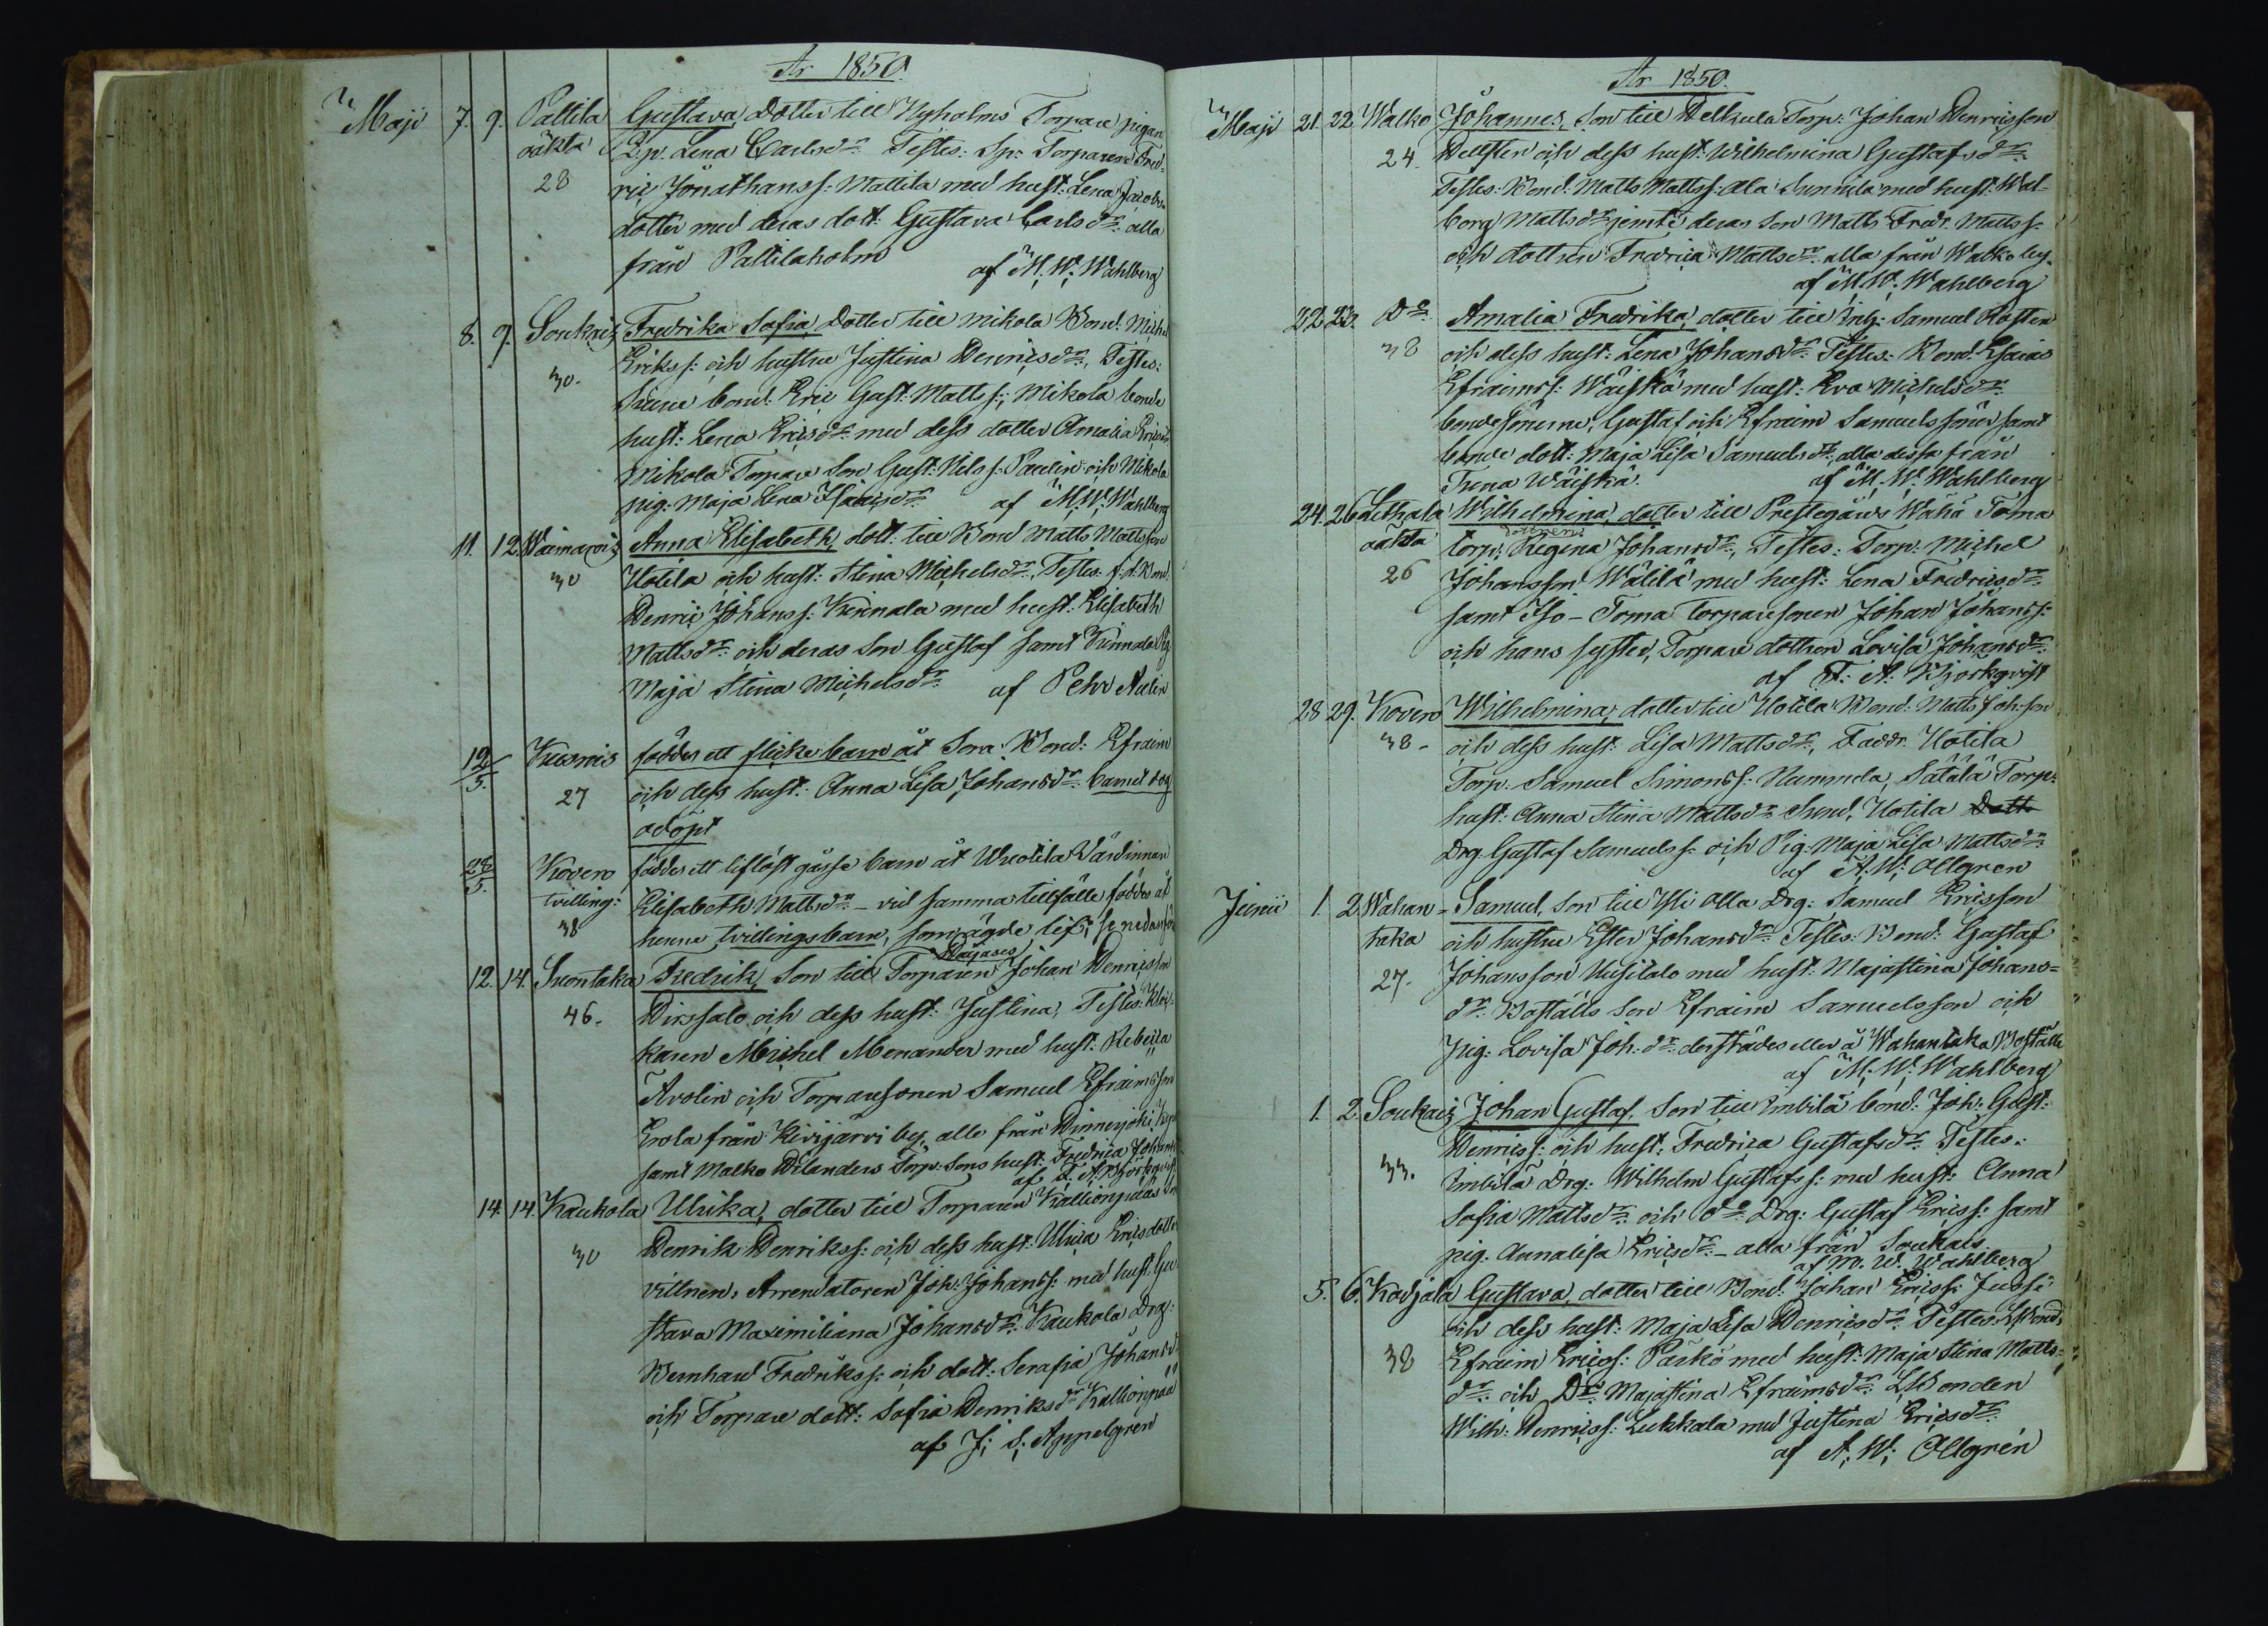 År 1850.
Maji 7. 9. Pallila Gustava, dotter till Nyholms Torpare pigan
oäkta Q.p. Lena Carlsdr Testes: Sp: Torparen Fred-
28 ric Jonathanss: Mattila med hust: Lena Jacobs-
dotter med deras dott: Gustava Carlsdr alla
från Pallilaholm af M. W. Wahlberg
8. 9. Soukais Fredrika Sofia, dotter till Mikola Bond. Michel
30. Erikss: och hustru Justina Henricsdr, Testes:
bond: Eric Gust. Mattss:, Mikola bonde
hust: Lena Ericsdr med dess dotter Amalia
Mikola Torpare Son Gust: Nilss: Paulin och Mikola
pig: Maja Lena Isaacsdr af M. W. Wahlberg
11. 12. Anna Elisabeth, dott: till Bond Matts Mattsson
30 Uotila och hust: Stina Michelsdr, Testes: f.d. Bond.
Henric Johanss: Kinnala med hust: Elisabeth
Mattsdr och deras Son Gustaf samt Kinnala Pig
Maja Stina Michelsdr af Pehr Aulin
12/5. föddes ett flickebarn åt Sora Bond: Efraim
27 och dess hust: Anna Lisa Johansdr barnet dog
odöpt
28/5. Kovero föddes ett liflöst gosse barn åt Uwotila Wärdinnan
tvilling: Elisabeth Mattsdr - vid samma tillfälle föddes åt
38 henne tvillingsbarn, som ägde lif; se nedanför
12. 14. Suontaka Fredrik, Son till Torparen Johan Henricsson
46. Hirssalo och dess hust: Justina, Testes: Kloc-
karen Michel Menander med hust: Rebecca
Avolin och Torparesonen Samuel Efraimsson
Erola från Kivijärvi by, alle från Hinnerjoki
samt Malko Hilanders Torp: Sons hust: Fredrica
af F. A. Björkqvist
14. 14. Kaukola Ulrika, dotter till Torparen Kallionpää
30 Henrik Henrikss: och dess hust: Ulrica Ericsdotter
vittnen: Arrendatoren Joh: Johanss: med hust: Gu-
stava Maximiliana Johansdr Kaukola Drg:
Bernhard Fredrikss: och dott: Serafia Johansdr
och Torpare dott: Sofia Henriksdr Kallionpää
af J: S: Appelgren
År 1850.
Maji 21. 22. Walko Johannes, Son till Hellsula Torp: Johan Henricsson
24 Hellsten och dess hust: Wilhelmina Gustafsdr
Testes: Bond. Matts Mattss: Ala Sunnila med hust: Wal-
borg Mattsdr jemte deras Son Matts Fredr. Mattss:
och dottren Fredrica Mattsdr alla från Walko by.
af M. W. Wahlberg
22. 23. Do Amalia Fredrika, dotter till Inh: Samuel Rosten
38 och dess hust: Lena Johansdr Testes: Bond: Esaias
Efraimss: Wäiskä med hust: Eva Michelsdr
bondesönerne, Gustaf och Efraim Samuelssöner samt
bonde dott: Maja Lisa Samuelsdr, alla dessa från
Wäiskä. af M. W. Wahlberg
24. 26 Lethala Wilhelmina, dotter till Prestegårds Wähä Toma
oäkta torp: dottren Regina Johansdr, Testes: Torp: Michel
26 Johansson Wälilä med hust: Lena Fredricsdr
samt Iso-Toma torparesonen Johan Johanss:
och hans syster, Torpare dottren Lovisa Johansdr
af F. A. Björkqvist
28 29. Kovero Wilhelmina, dotter till Uotila Bond: Matts Joh:son
38- och dess hust: Lisa Mattsdr, Faddr. Uotila
Torp. Samuel Simonss: Nummela, Sätälä Torp:
hust: Anna Stina Mattsdr Uotila
Drg. Gustaf Samuelss: och Pig: Maja Lisa Mattsdr
af A. W: Allgren
Junii 1. 2. Wahan- Samuel, Son till Yli Alla Drg: Samuel Ericsson
taka och hustru Ester Johansdr Testes: Bond: Gustaf
27. Johansson Uusitalo med hust: Majastina Johans-
dr Boställs Son Efraim Samuelsson och
Pig: Lovisa Joh:dr derstädes eller å Wahantaka Boställe
af M. W: Wahlberg
1. 2. Soukais Johan Gustaf, Son till Imbilä bond: Joh: Gust:
Henricss: och hust: Fredrica Gustafsdr Testes:
33. Imbilä Drg: Wilhelm Gustafss: med hust: Anna
Sofia Mattsdr och do Drg: Gustaf Ericss: samt
pig: Annalisa Ericsdr - alla från Soukais
af M. W. Wahlberg
5. 6. Kodjala Gustava, dotter till Bond: Johan Ericss: Jussi
och dess hust: Maja Lisa Henricsdr Testes: LBond.
38 Efraim Ericss: Parko med hust: Maja Stina Matts-
dr och Dr Majastina Efraimsdr LBonden
Wilh: Henricss: Lukkala med Justina Ericsdr
af A. W. Allgrén